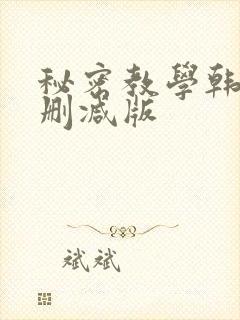 秘密教學韩
删减版
斌斌